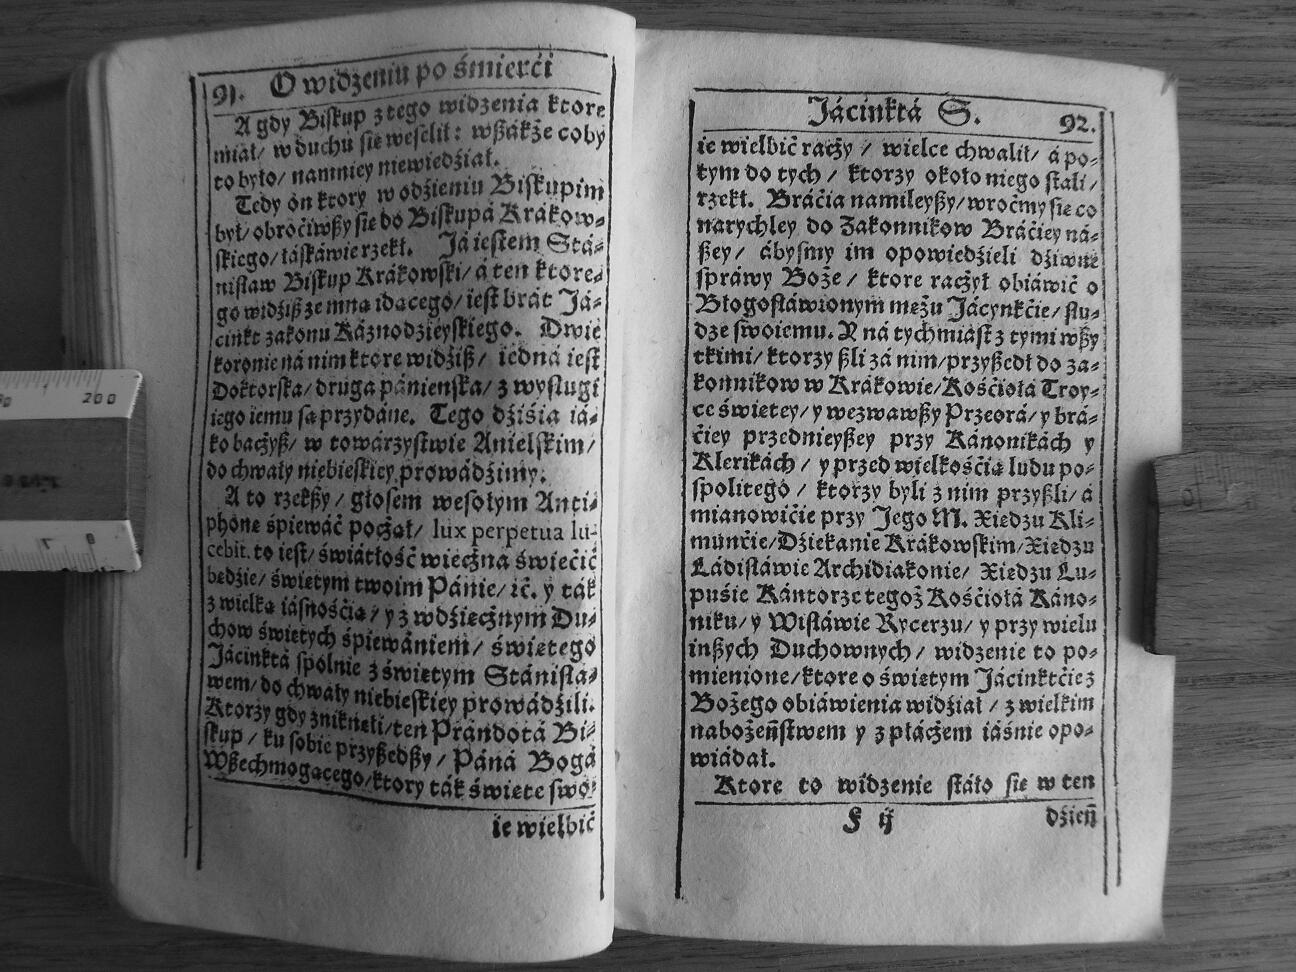 91. O widzeniu po śmierći
A gdy Biskup z tego widzenia ktore
miał/ w duchu sie weselił: wszákże coby
to było/ namniey niewiedźiał.
Tedy on ktory w odżieniu Biskupim
był/ obroćiwszy sie do Biskupá Krákow⸗
skiego/ łáskáwie rzekł. Já iestem Stá⸗
nisław Biskup Krákowski/ á ten ktore⸗
go widźisz ze mną idącego/ iest brát Já⸗
cinkt zakonu Káznodzieyskiego. Dwie
koronie ná nim ktore widźisz/ iedná iest
Doktorska/ druga pánienska/ z wysługi
iego iemu są przydáne. Tego dźiśia iá⸗
ko baczysz/ w towárzystwie Anielskim/
do chwały niebieskiey prowádźimy.
A to rzekszy/ głosem wesołym Anti⸗
phonę śpiewáć począł/ lux perpetua lu-
cebit. to iest/ świátłość wieczna świećić
bedźie/ świetym twoim Pánie/ ꝛć. y ták
z wielką iásnośćią/ y z wdźiecznym Du⸗
chow świetych śpiewániem/ świetego
Jácinktá spolnie z świetym Stánisłá⸗
wem/ do chwały niebieskiey prowádźili.
Ktorzy gdy znikneli/ ten Prándotá Bi⸗
skup/ ku sobie przyszedszy/ Páná Bogá
Wszechmogącego/ ktory ták świete swo⸗
ie wielbić
Jácinktá S. 92.
ie wielbić raczy/ wielce chwalił/ á po⸗
tym do tych/ ktorzy około niego stali/
rzekł. Bráćia namileyszy/ wroćmy sie co
narychley do Zakonnikow Bráćiey ná⸗
szey/ ábysmy im opowiedźieli dźiwne
spráwy Boże/ ktore raczył obiáwić o
Błogosłáwionym mężu Jácynkćie/ słu⸗
dze swoiemu. Y ná tychmiást z tymi wszy
tkimi/ ktorzy szli zá nim/ przyszedł do za⸗
konnikow w Krákowie/ Kośćiołá Troy⸗
ce świetey/ y wezwawszy Przeorá/ y brá⸗
ćiey przednieyszey przy Kánonikách y
Klerikách/ y przed wielkośćią ludu po⸗
spolitego/ ktorzy byli z nim przyszli/ á
mianowićie przy Jego M. Xiedzu Kli⸗
munćie/ Dźiekanie Krákowskim/ Xiedzu
Ládisłáwie Archidiakonie/ Xiedzu Lu⸗
puśie Kántorze tegoż Kośćiołá Káno⸗
niku/ y Wisłáwie Rycerzu/ y przy wielu
inszych Duchownych/ widzenie to po⸗
mienione/ ktore o świetym Jácinktćie z
Bożego obiáwienia widźiał/ z wielkim
nabożeństwem y z płáczem iáśnie opo⸗
wiádał.
Ktore to widzenie stáło sie w ten
F ij dźień